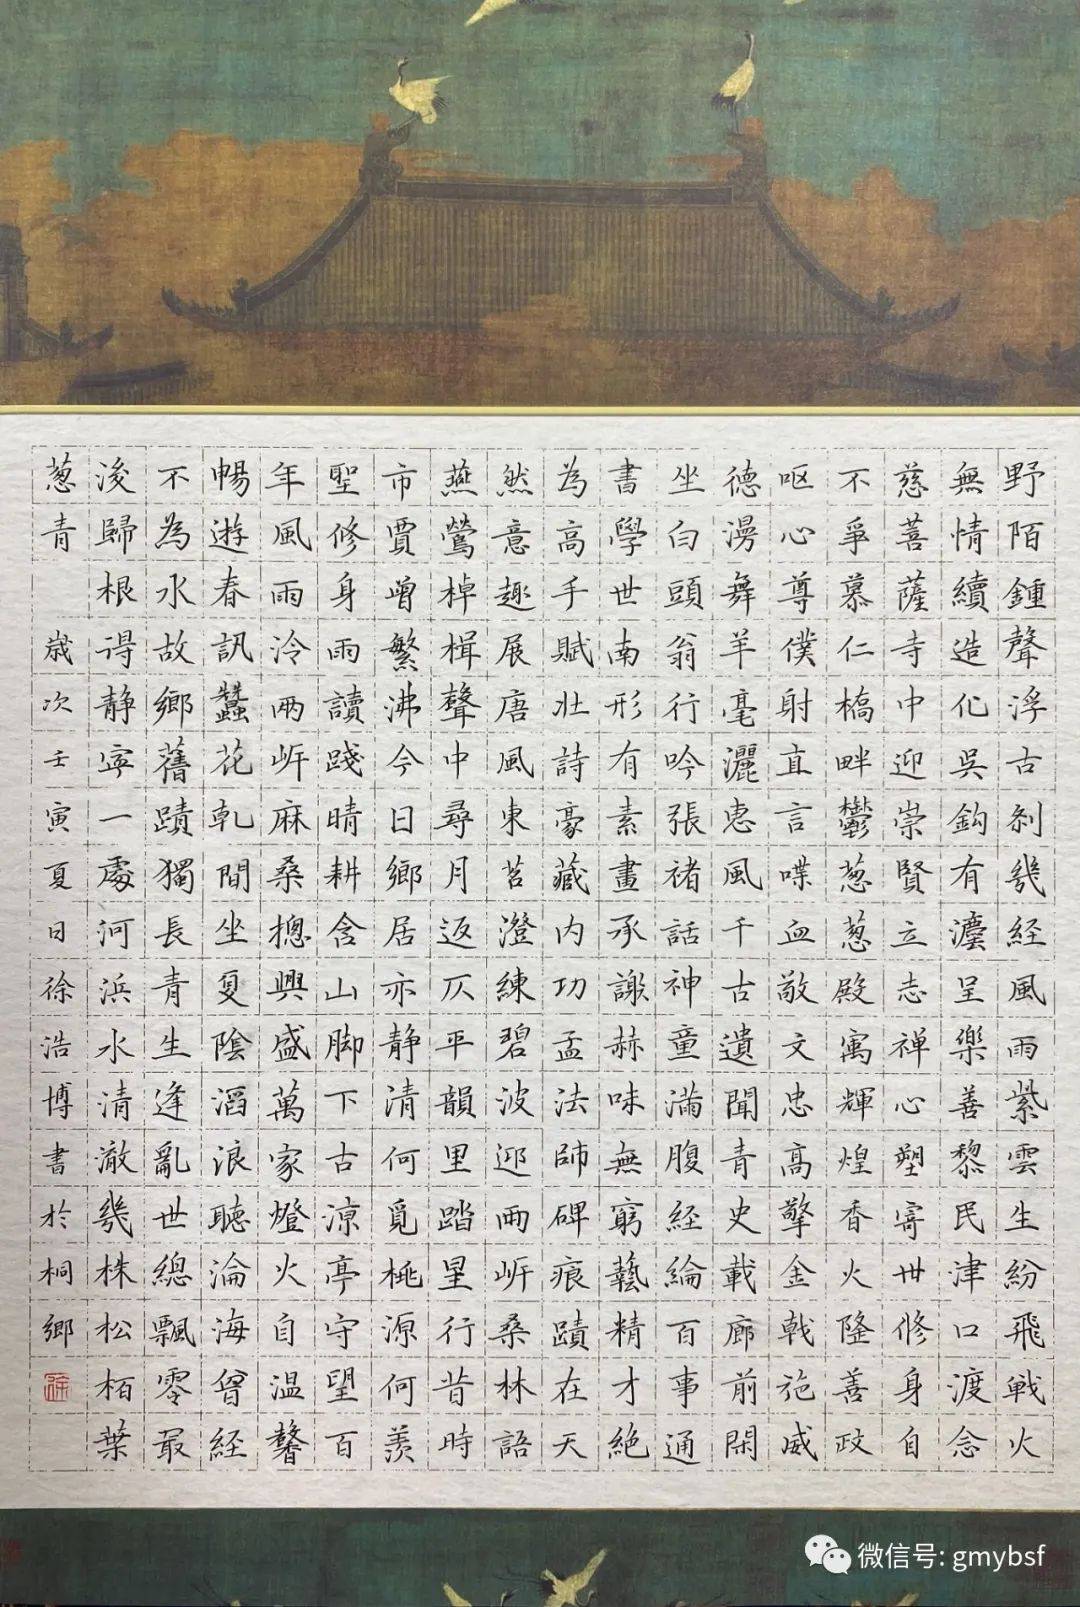 野陌鍾聲浮古刹幾經風雨紫雲生紛飛戰火
無情續造化吳鈎有灋呈樂善黎民津口渡念
慈菩薩寺中迎崇賢立志禅心塑寄世修身自
不爭慕仁橋畔鬱葱葱殿寓輝煌香火隆善政
呕心尊僕射直言喋血敢文忠高擎金戟施威
德漫舞羊毫灑惠風千古遺聞青史載廊前閑
坐白頭翁行吟張褚話神童滿腹經綸百事通
書學世南形有素畫承謝赫味無窮藝精才絶
為高手賦壯詩豪藏内功孟法師碑痕蹟在天
然意趣展唐風東苕澄練碧波迎兩岍桑林語
燕鶯棹楫聲中尋月返仄平韻里踏星行昔時
市賈曾繁沸今日鄉居亦静清何覓桃源何羨
聖修身雨讀踐晴耕含山脚下古涼亭守望百
年風雨泠兩岍麻桑摠興盛萬家燈火自温馨
暢遊春訊蠶花乹閒坐夏陰滔浪聴淪海曾經
不為水故鄉舊蹟獨長青生逢亂世總飄零最
後歸根得静寧一處河浜水清澈幾株松栢葉
葱青 歲次壬寅夏日徐浩博書於桐鄉
微信号: gmybsf